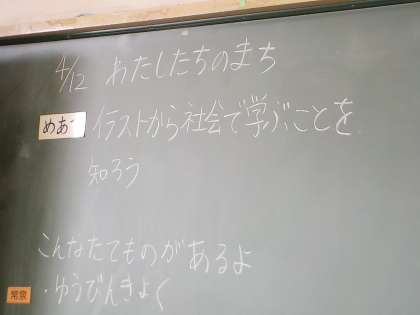 4/12 わたしたちのまち
めあて イラストから社会で学ぶことを
知ろう
こんなたてものがあるよ
・ゆうびんきょく